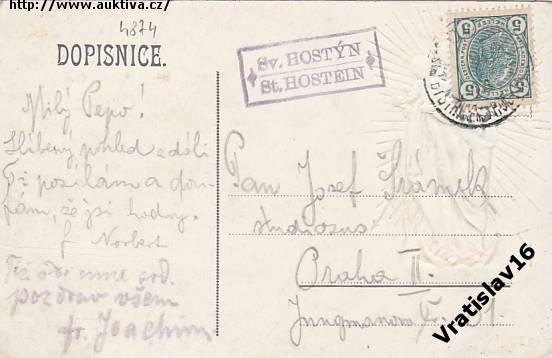 ( www.auktiva.cz )
4374
DOPISNICE.
Sv. HOSTÝN
St. HOSTEIN
5 5
5 5
Milý Pepo!
Slíbený pohled z dáli
Ti posílám a doufám, že jsi hodný.
f Norbert
Též ode mne
pozdrav všem
fr. Joachim
Pan Josef Šrámek
studiosus
Praha II.
Jungmanova Č.
Vratislav16